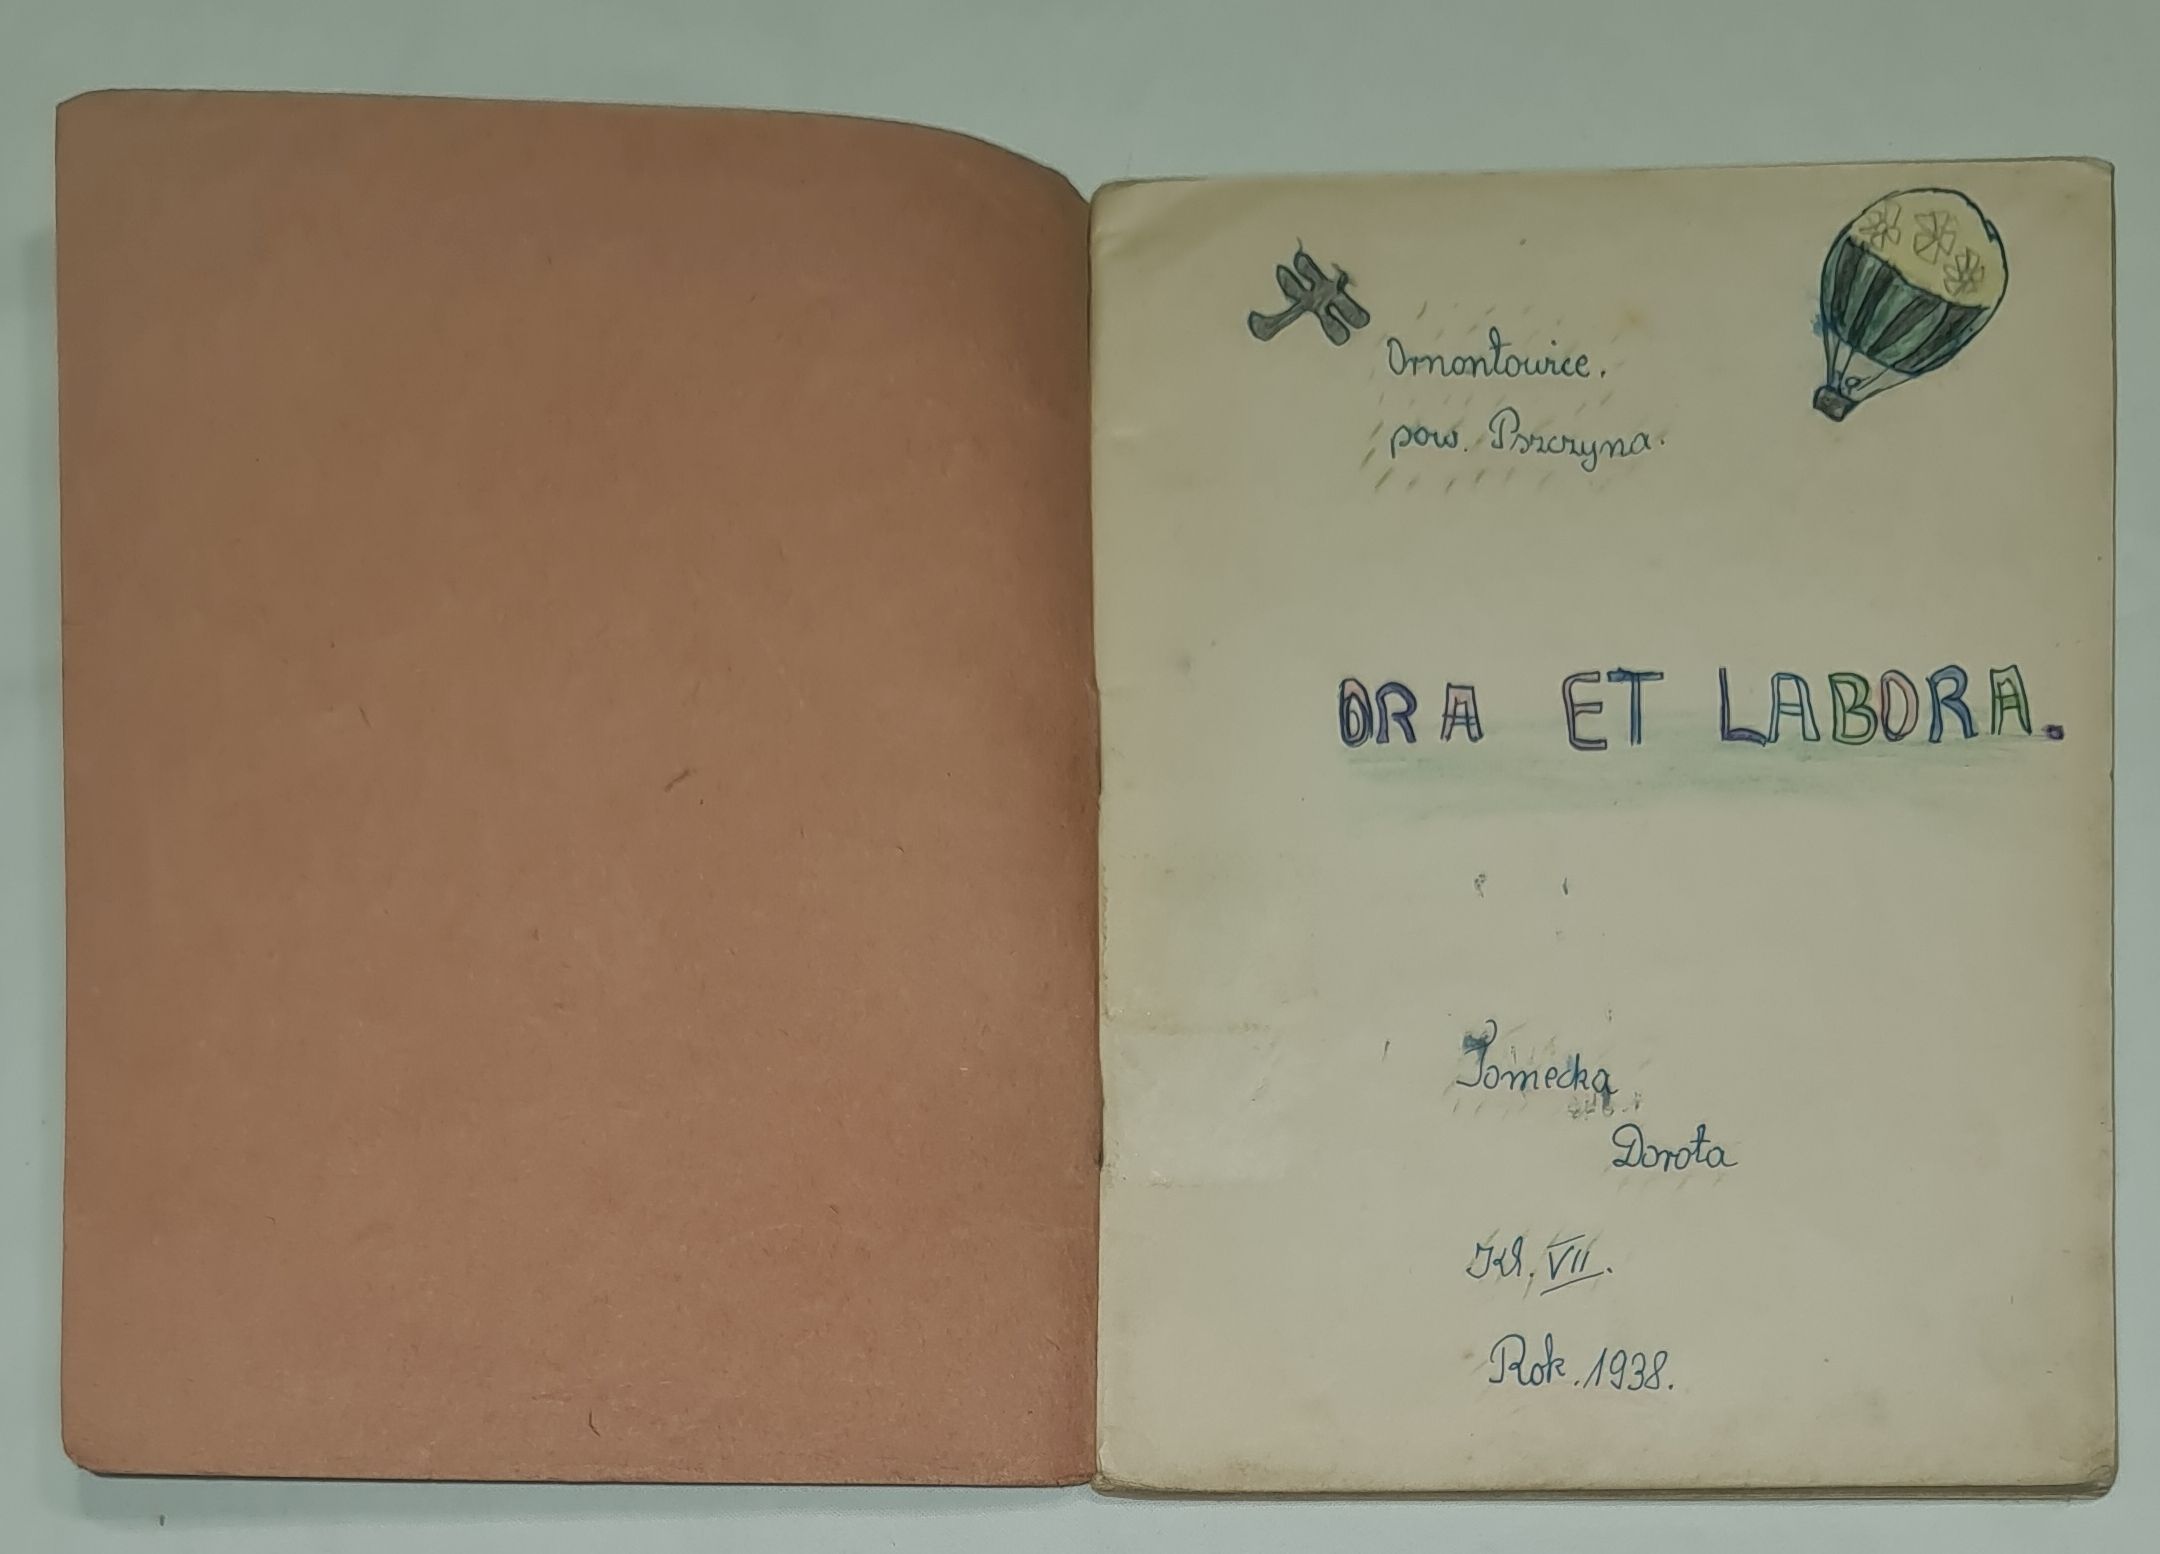 Ornontowice.
pow. Pszczyna.
ORA ET LABORA.
Tomecka
Dorota
Kl. VII.
Rok. 1938.